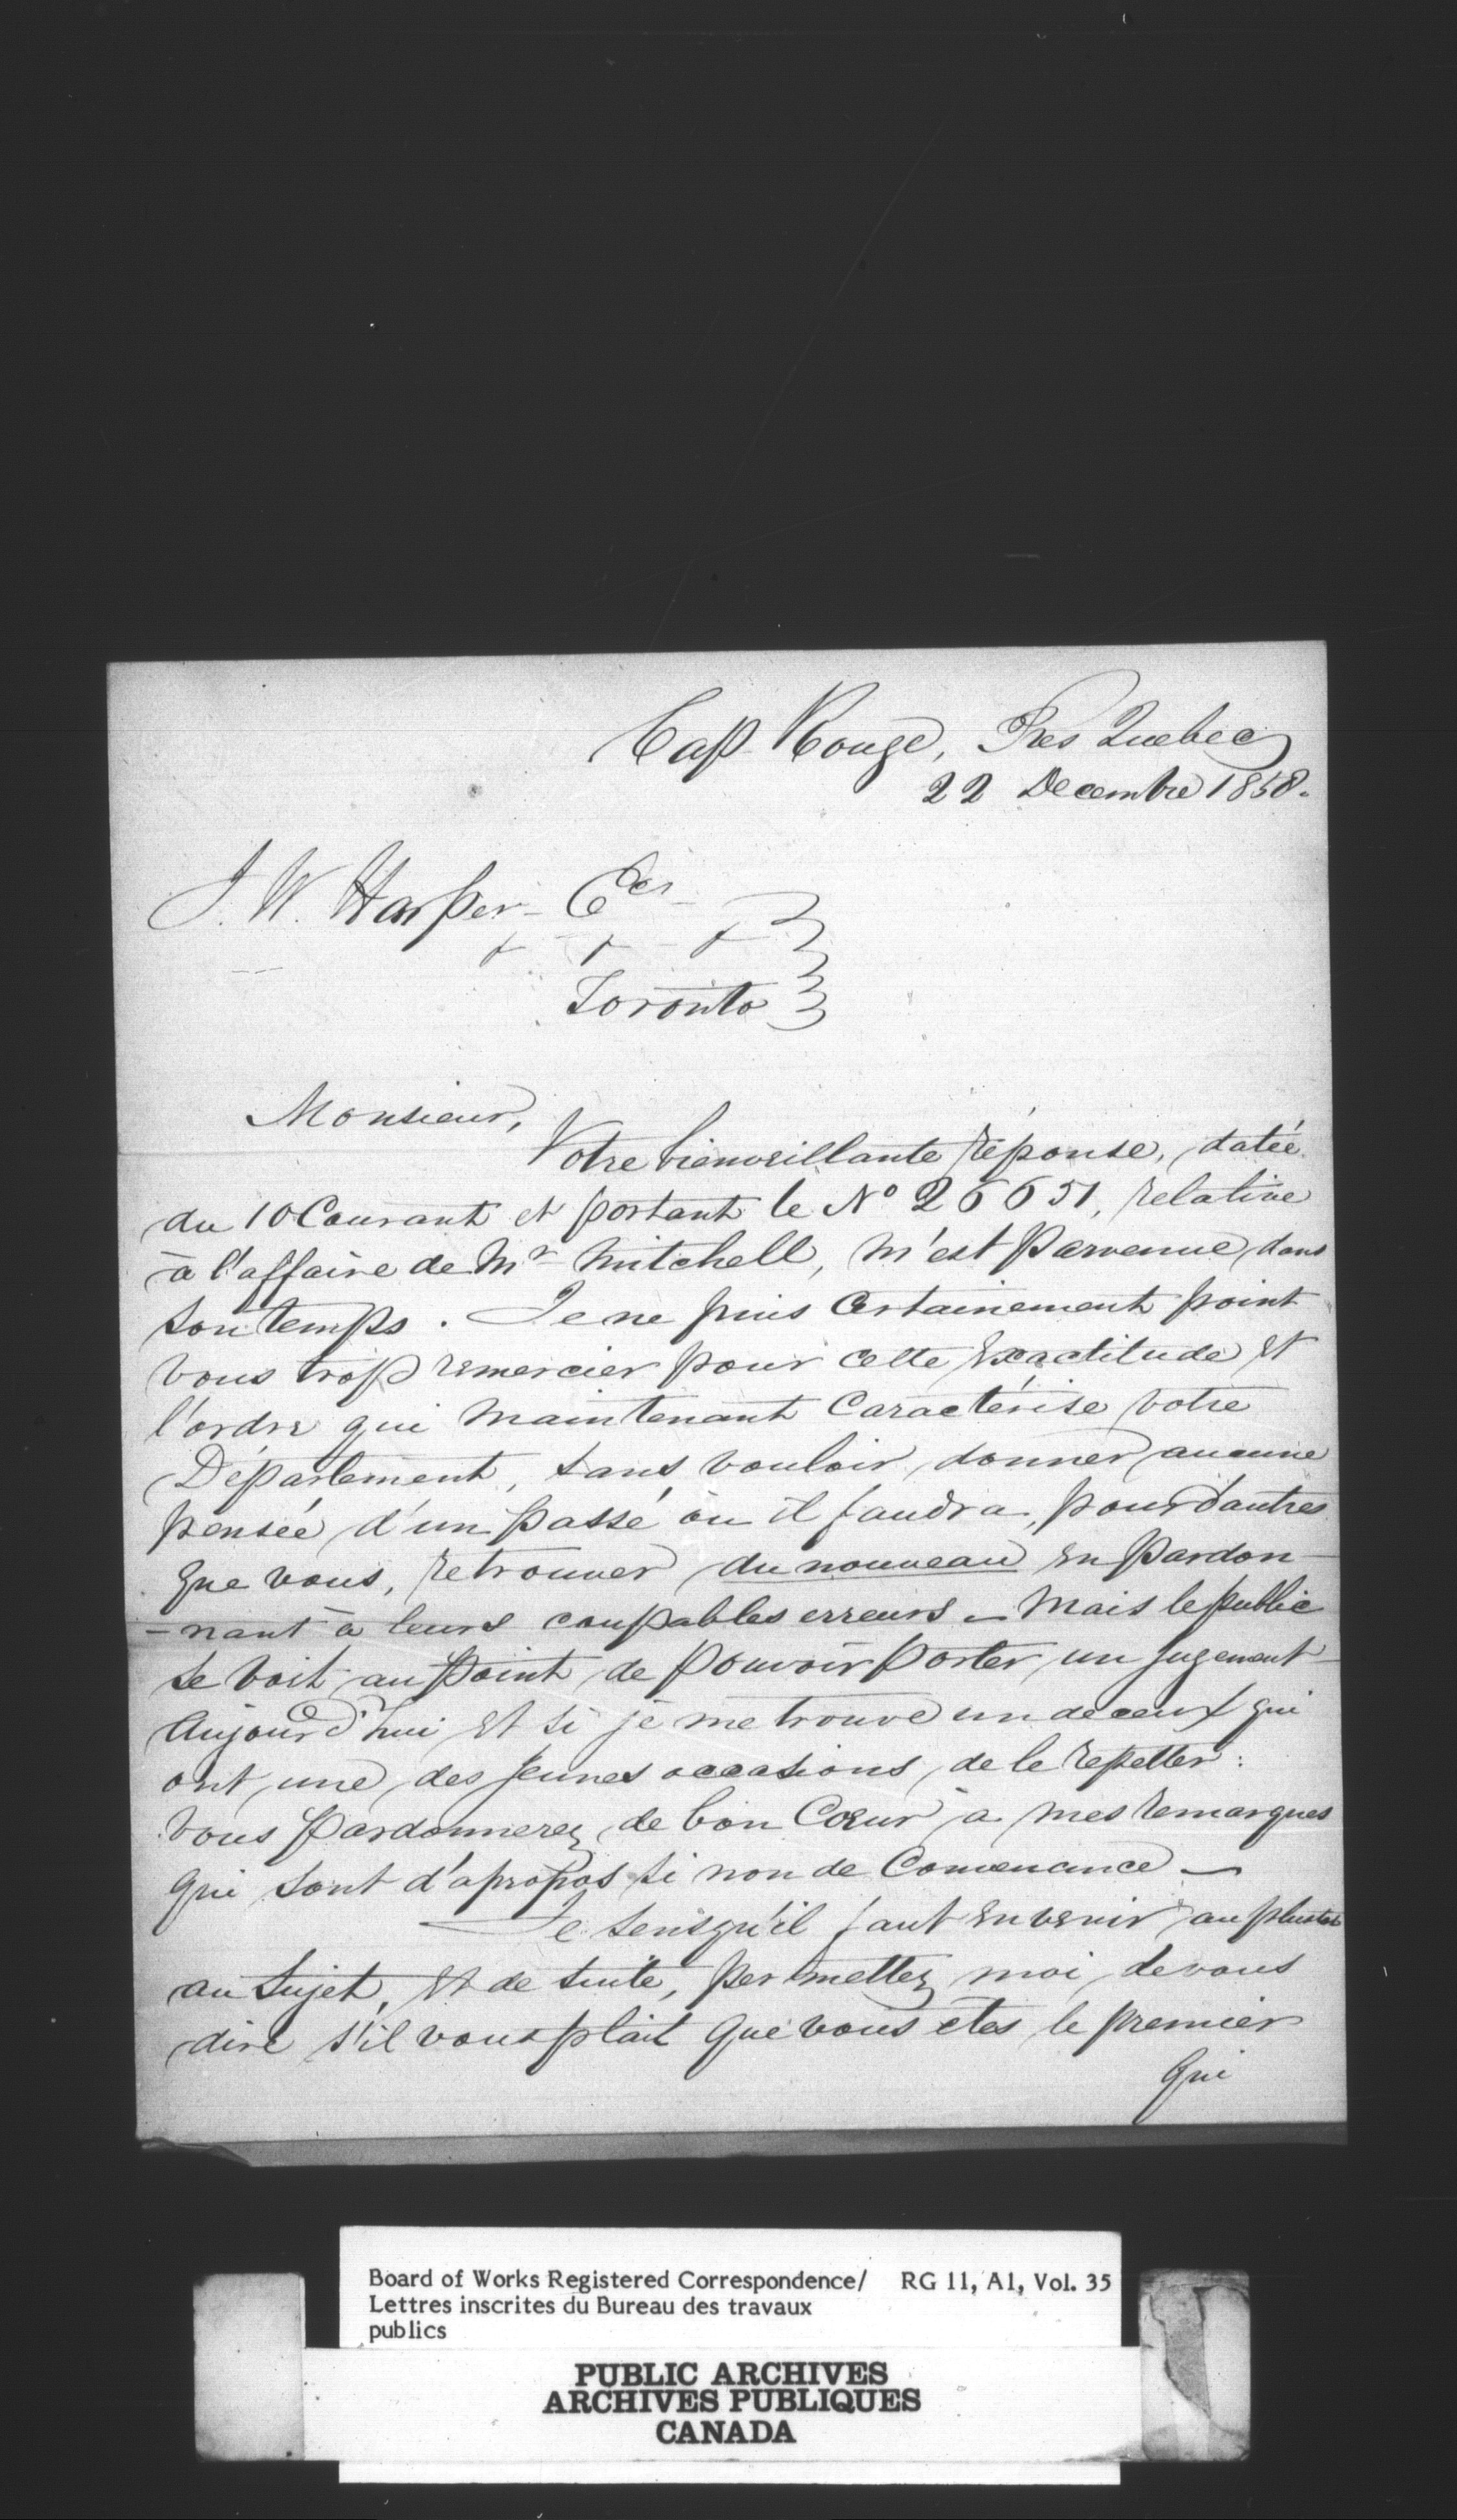 Cap Rouge, Pres Quebec
22 Decembre 1858.
J. W. Harper - Ecr -
+ + +
Toronto
Monsieur,
Votre bienveillante réponse, datée
du 10 Courant et portant le No 26651, relative
à l'affaire de Mr Mitchell, m'est parvenue dans
son temps. Je ne puis certainement point
vous trop remercier pour cette exactitude et
l'ordre qui maintenant caractérise votre
Département, sans vouloir donner aucune
pensée d'un passé où il faudra, pour d'autres
que vous, retrouver du nouveau en pardon-
-nant à leurs coupables erreurs - Mais le public
se voit au point de pouvoir porter un jugement
Aujourd'hui et si je me trouve un de ceux qui
ont une des jeunes occasions de le repetter:
Vous pardonnerez de bon Cœur à mes remarques
qui sont d'apropos si non de Convenance —
Je sens qu'il faut en venir au plustot
au Sujet, et de suite, permettez moi de vous
dire s'il vous plait que vous etes le premier
qui
Board of Works Registered Correspondence/ RG 11, A1, Vol. 35
Lettres inscrites du Bureau des travaux
publics
PUBLIC ARCHIVES
ARCHIVES PUBLIQUES
CANADA